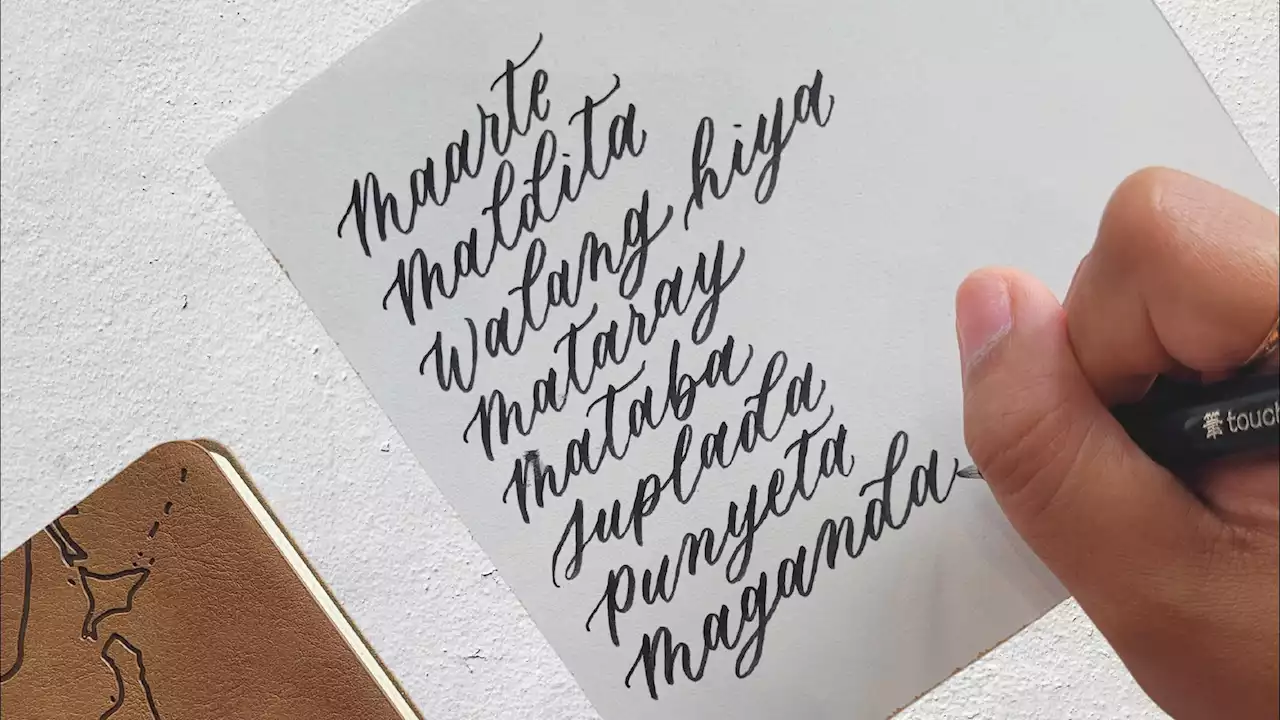 Maarte
Maldita
Walang hiya
Mataray
Mataba
Suplada
Punyeta
Maganda
筆touch